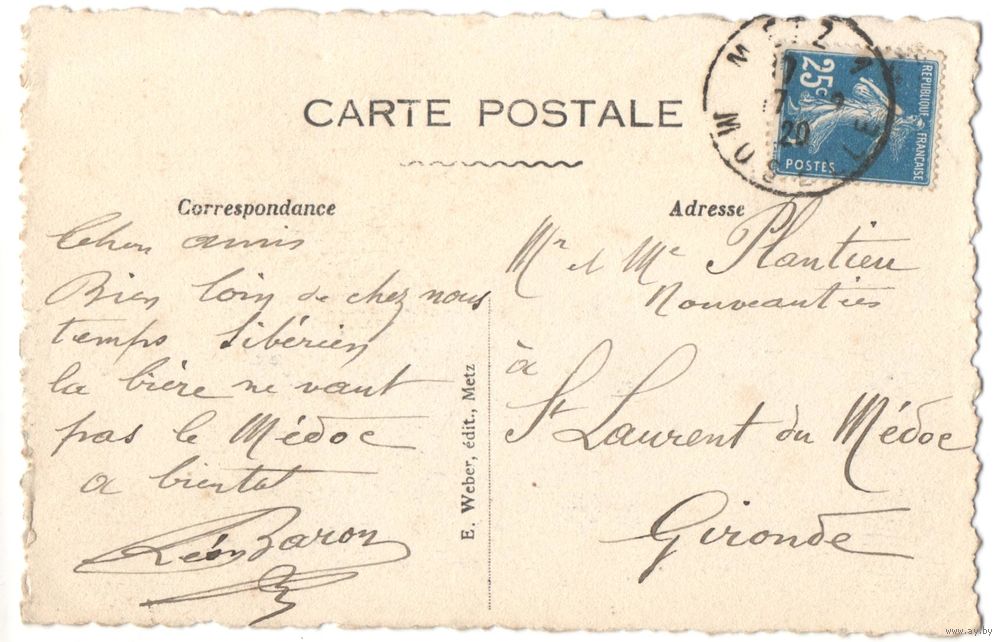 CARTE POSTALE
Correspondance
Chers amis
Bien loin de chez nous
temps Sibérien
la bière ne vaut
pas le Médoc
a bientot
Léon Baron
E. Weber, édit., Metz
Adresse
Mr et Me Plantieu
Nouveautés
à
St Laurent du Médoc
Gironde
METZ
MOSELLE
20
25c
POSTES
REPUBLIQUE FRANÇAISE
www.ay.by